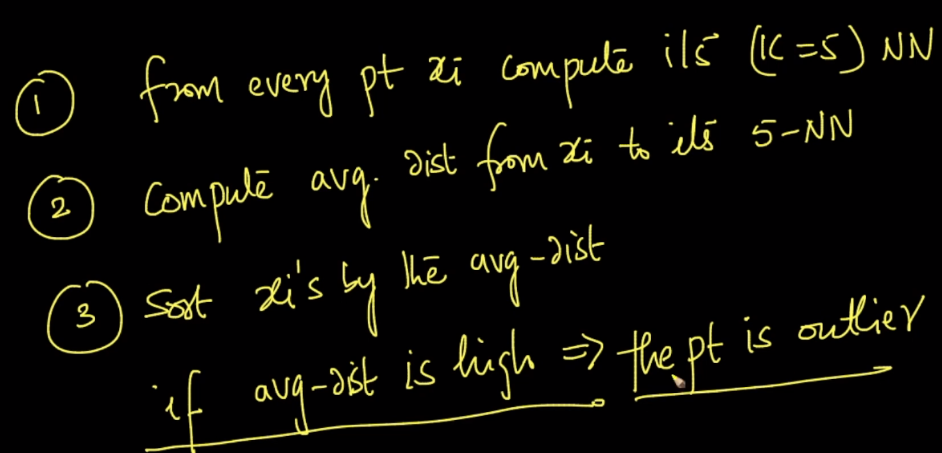 ① from every pt xi compute its (K=5) NN
② Compute avg. dist from xi to its 5-NN
③ Sort xi's by the avg-dist
if avg-dist is high => the pt is outlier